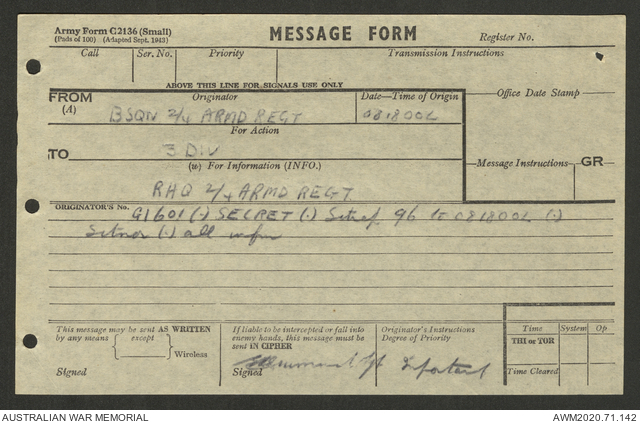 Army Form C2136 (Small)
(Pads of 100) (Adapted Sept. 1943)
MESSAGE FORM
Register No.
Call Ser. No. Priority Transmission Instructions
ABOVE THIS LINE FOR SIGNALS USE ONLY
FROM Originator Date—Time of Origin Office Date Stamp
(A) B SQN 2/4 ARMD REGT 081800L
For Action
TO 3 DIV
(w) For Information (INFO.) Message Instructions GR
RHQ 2/4 ARMD REGT
ORIGINATOR'S No. G1601 (.) SECRET (.) Sitrep 96 to 081800L (.)
Sitnor (.) all infm
This message may be sent AS WRITTEN
by any means except
Wireless
Signed
If liable to be intercepted or fall into
enemy hands, this message must be
sent IN CIPHER
Signed Lt
Originator's Instructions
Degree of Priority
Important
Time System Op
THI or TOR
Time Cleared
AUSTRALIAN WAR MEMORIAL AWM2020.71.142